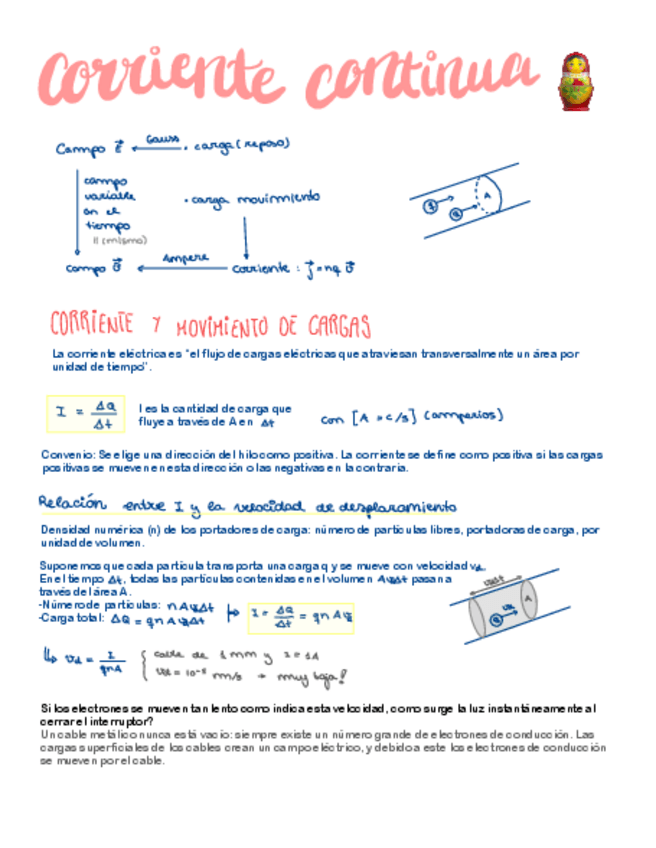 corriente continua
Campo E⃗ ← Gauss · carga (reposo)
campo
variable
en el
tiempo
II (mismo)
· carga movimiento
campo B⃗ ← Ampere corriente : J⃗ = nq v⃗
q
q
A
CORRIENTE Y MOVIMIENTO DE CARGAS
La corriente eléctrica es "el flujo de cargas eléctricas que atraviesan transversalmente un área por
unidad de tiempo".
I = ΔQ/Δt
I es la cantidad de carga que
fluye a través de A en Δt
con [A = C/s] (amperios)
Convenio: Se elige una dirección del hilo como positiva. La corriente se define como positiva si las cargas
positivas se mueven en esta dirección o las negativas en la contraria.
Relación entre I y la velocidad de desplazamiento
Densidad numérica (n) de los portadores de carga: número de partículas libres, portadoras de carga, por
unidad de volumen.
Suponemos que cada partícula transporta una carga q y se mueve con velocidad vd.
En el tiempo Δt, todas las partículas contenidas en el volumen AvdΔt pasan a
través del área A.
-Número de partículas: nAvdΔt
-Carga total: ΔQ = qnAvdΔt
I = ΔQ/Δt = qnAvd
vdΔt
vd
q
A
↳ vd = I/qnA
cable de 1 mm y I = 1A
vd = 10⁻⁵ m/s → muy baja!
Si los electrones se mueven tan lento como indica esta velocidad, como surge la luz instantáneamente al
cerrar el interruptor?
Un cable metálico nunca está vacío: siempre existe un número grande de electrones de conducción. Las
cargas superficiales de los cables crean un campo eléctrico, y debido a este los electrones de conducción
se mueven por el cable.